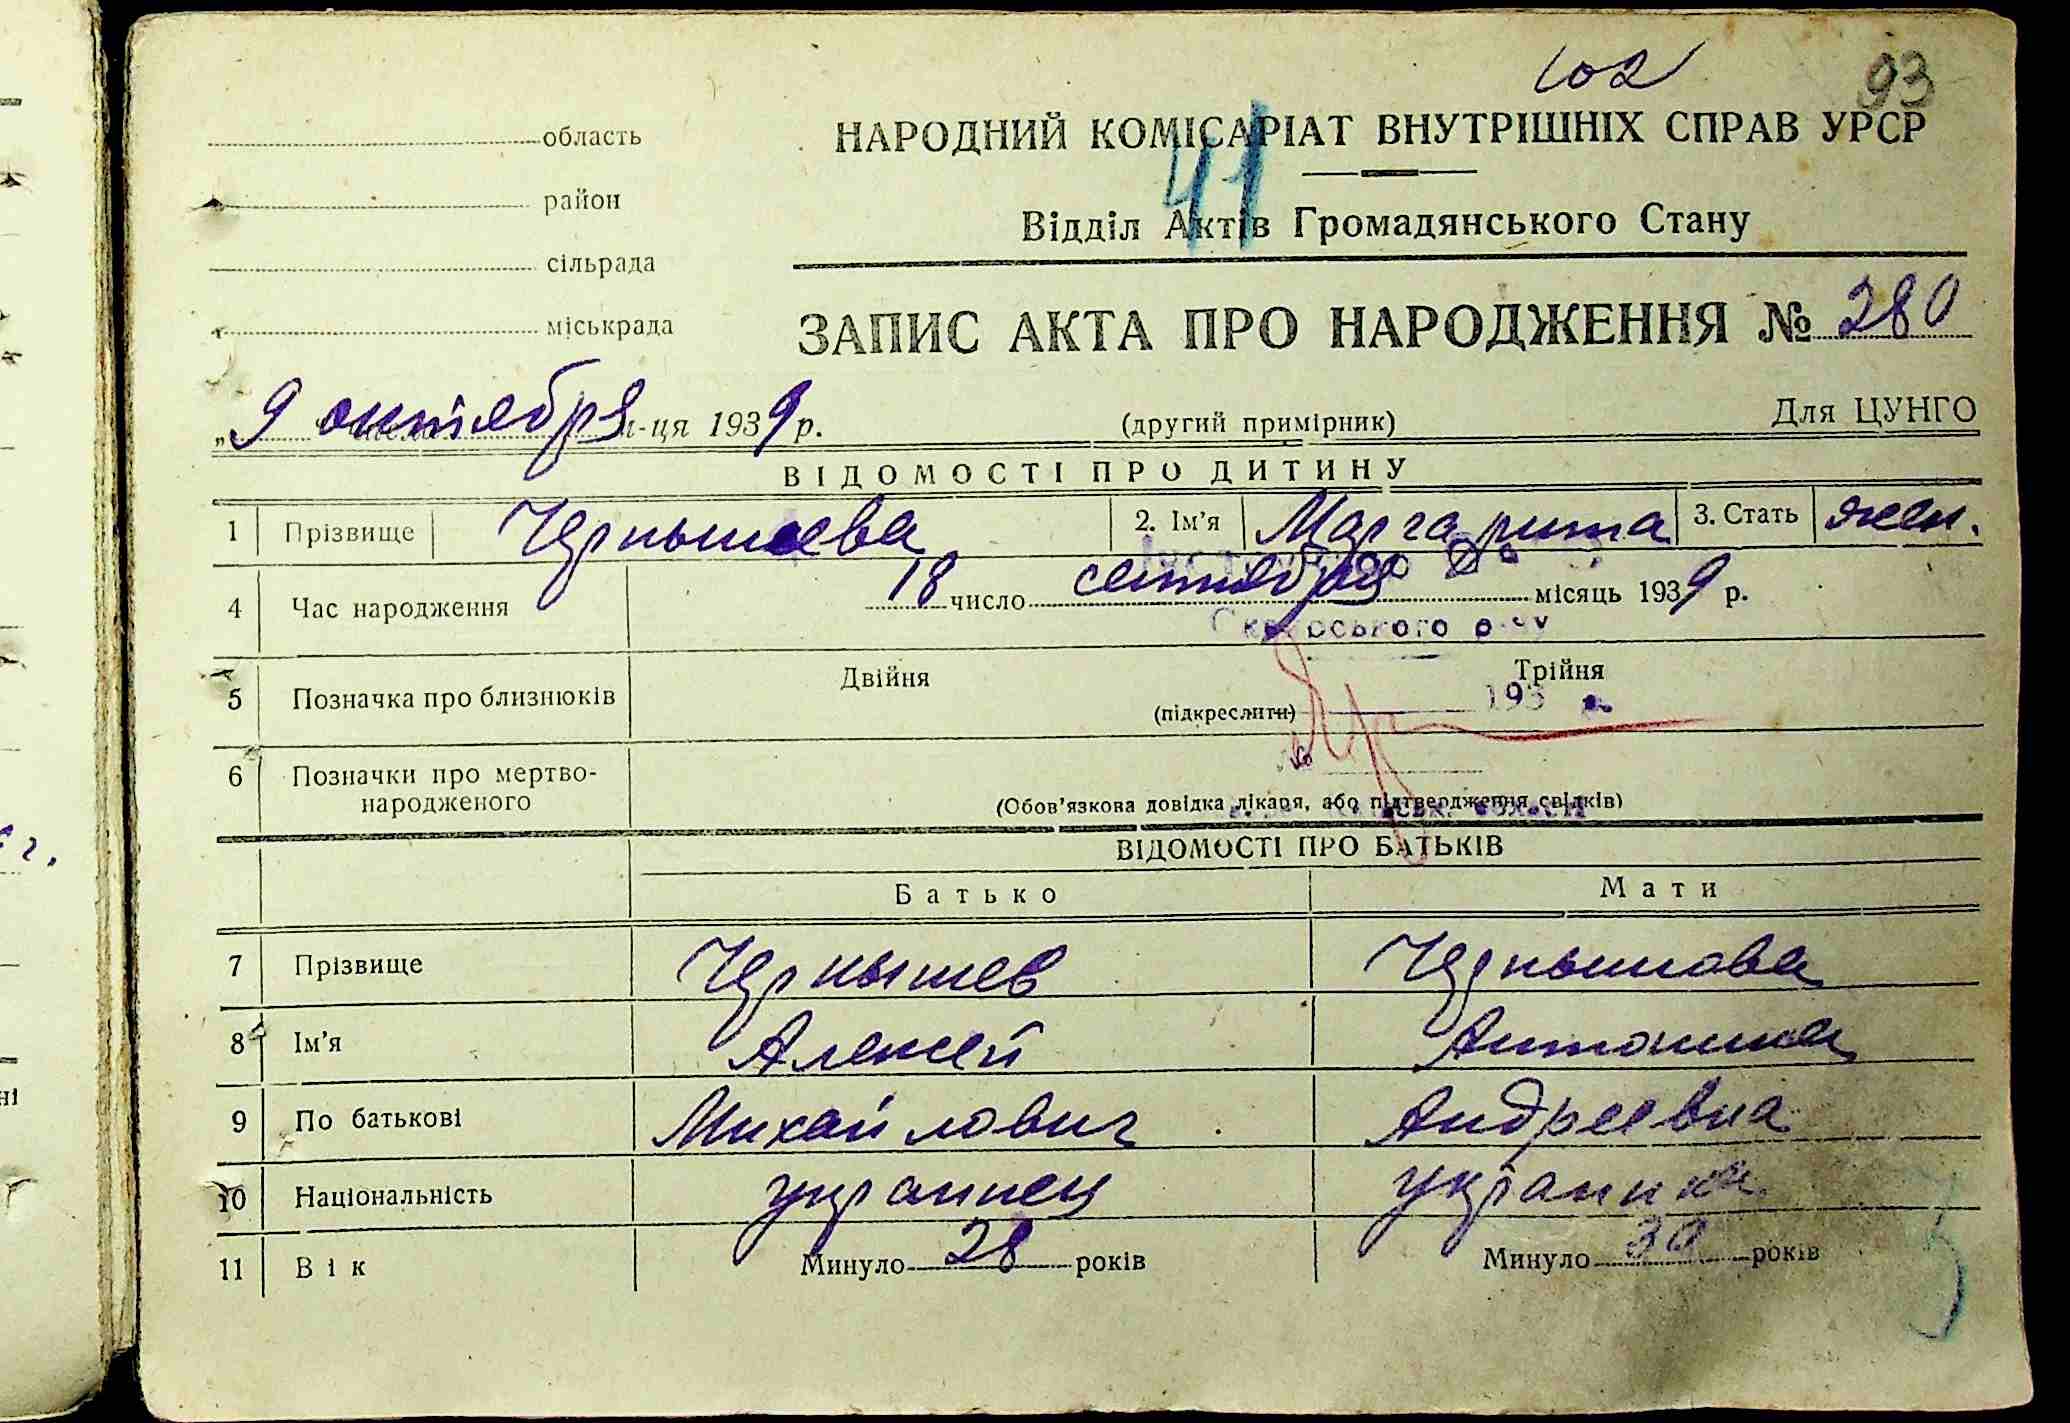 102 93
область НАРОДНИЙ КОМІСАРІАТ ВНУТРІШНІХ СПРАВ УРСР
41
район
Відділ Актів Громадянського Стану
сільрада
міськрада ЗАПИС АКТА ПРО НАРОДЖЕННЯ № 280
„ 9 октября м-ця 1939 р. (другий примірник) Для ЦУНГО
ВІДОМОСТІ ПРО ДИТИНУ
1 Прізвище Чернышева 2. Ім'я Маргарита 3. Стать жен.
4 Час народження 18 число сентября місяць 1939 р.
Сквирського р-ну
5 Позначка про близнюків Двійня (підкреслити) Трійня
193 р.
№
6 Позначки про мертво-
народженого (Обов'язкова довідка лікаря, або підтвердження свідків)
ВІДОМОСТІ ПРО БАТЬКІВ
Батько Мати
7 Прізвище Чернышев Чернышова
8 Ім'я Алексей Антонина
9 По батькові Михайлович Андреевна
10 Національність украинец украинка
11 Вік Минуло 28 років Минуло 30 років
г.
ні